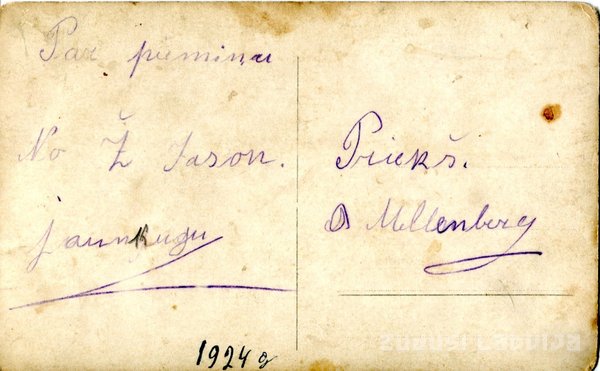 Par piemiņu
No Ž Jason.
jaunkugu
Priekš.
A Mellenberg
1924 g
Zudusi Latvija